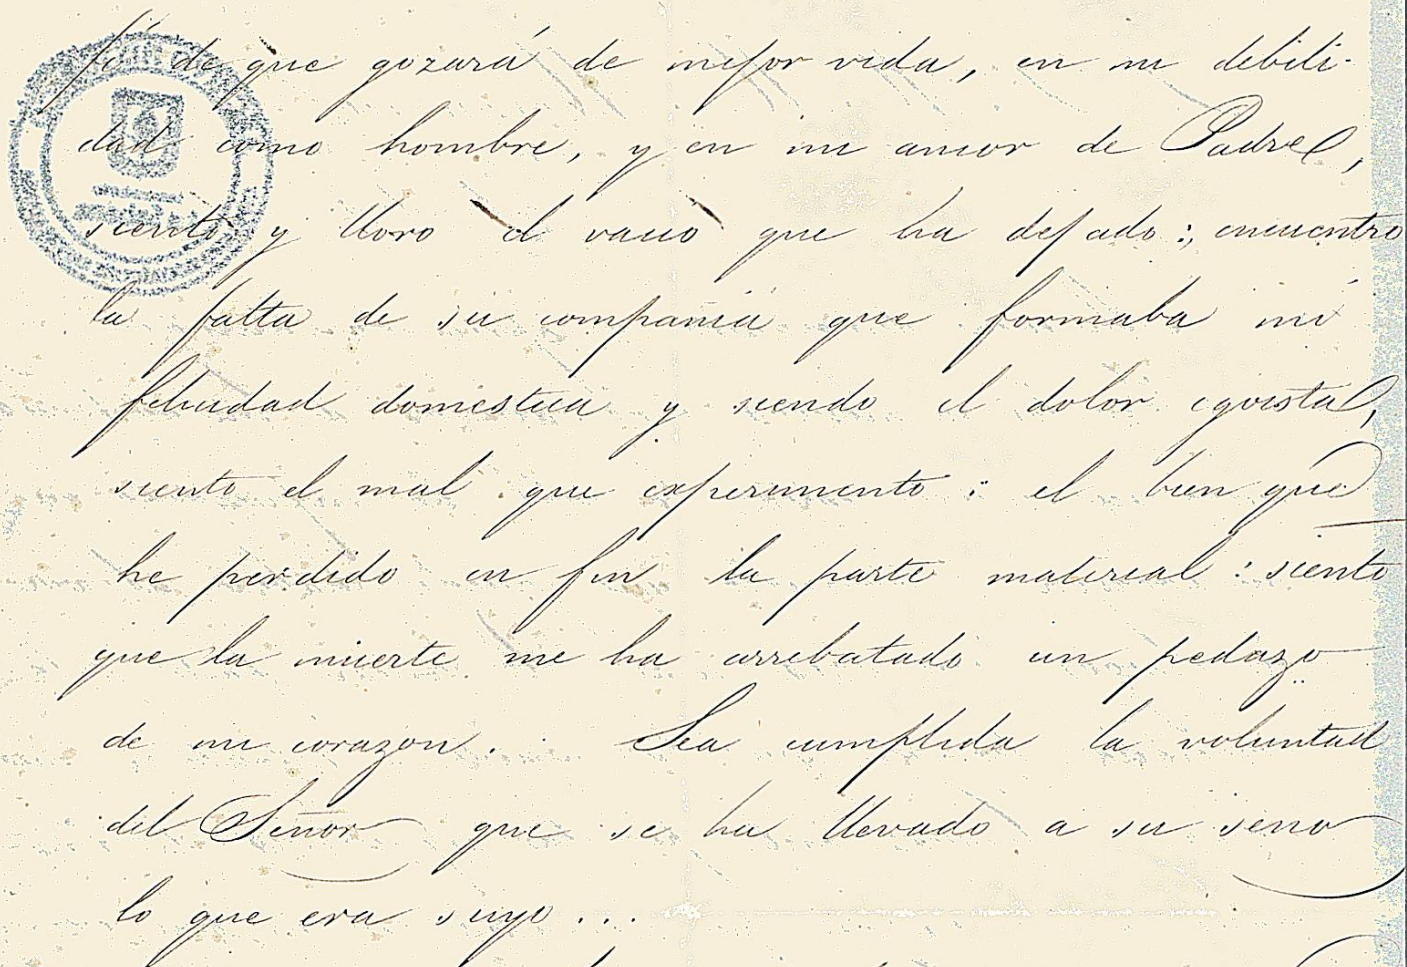 fé de que gozará de mejor vida, en mi debili-
dad como hombre, y en mi amor de Padre,
siento y lloro el vacio que ha dejado:, encuentro
la falta de su compañia que formaba mi
felicidad domestica y siendo el dolor egoista,
siento el mal que esperimento: el bien que
he perdido en fin la parte material: siento
que la muerte me ha arrebatado un pedazo
de mi corazon. Sea cumplida la voluntad
del Señor que se ha llevado a su seno
lo que era suyo...